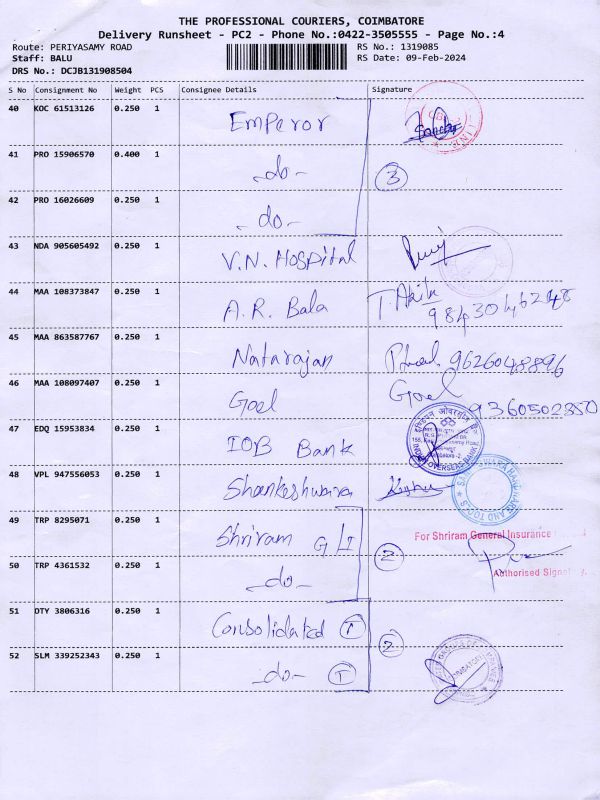 THE PROFESSIONAL COURIERS, COIMBATORE
Delivery Runsheet - PC2 - Phone No.:0422-3505555 - Page No.:4
Route: PERIYASAMY ROAD
Staff: BALU
DRS No.: DCJB131908504
RS No.: 1319085
RS Date: 09-Feb-2024
S No Consignment No Weight PCS Consignee Details Signature
40 KOC 61513126 0.250 1 Emperor
41 PRO 15906570 0.400 1 -do- 3
42 PRO 16026609 0.250 1 -do-
43 NDA 905605492 0.250 1 V.N. Hospital
44 MAA 108373847 0.250 1 A.R. Bala
45 MAA 863587767 0.250 1 Natarajan 9626048896
46 MAA 108097407 0.250 1 Goel Goel 9360502380
47 EDQ 15953834 0.250 1 IOB Bank
INDIAN OVERSEAS BANK
48 VPL 947556053 0.250 1 Shankeshwara
HARDWARE AND TOOLS
49 TRP 8295071 0.250 1 Shriram G I 2
For Shriram General Insurance
50 TRP 4361532 0.250 1 -do-
Authorised
51 DTY 3806316 0.250 1 Consolidated T 2
52 SLM 339252343 0.250 1 -do- T